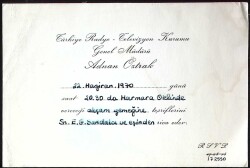 Türkiye Radyo - Televizyon Kurumu
Genel Müdürü
Adnan Öztrak
22 Haziran 1970 günü
saat 20.30 da Marmara Otelinde
vereceği akşam yemeğine teşriflerini
Sn. E.G. Sandalcı ve eşinden rica eder.
R S V P
172550